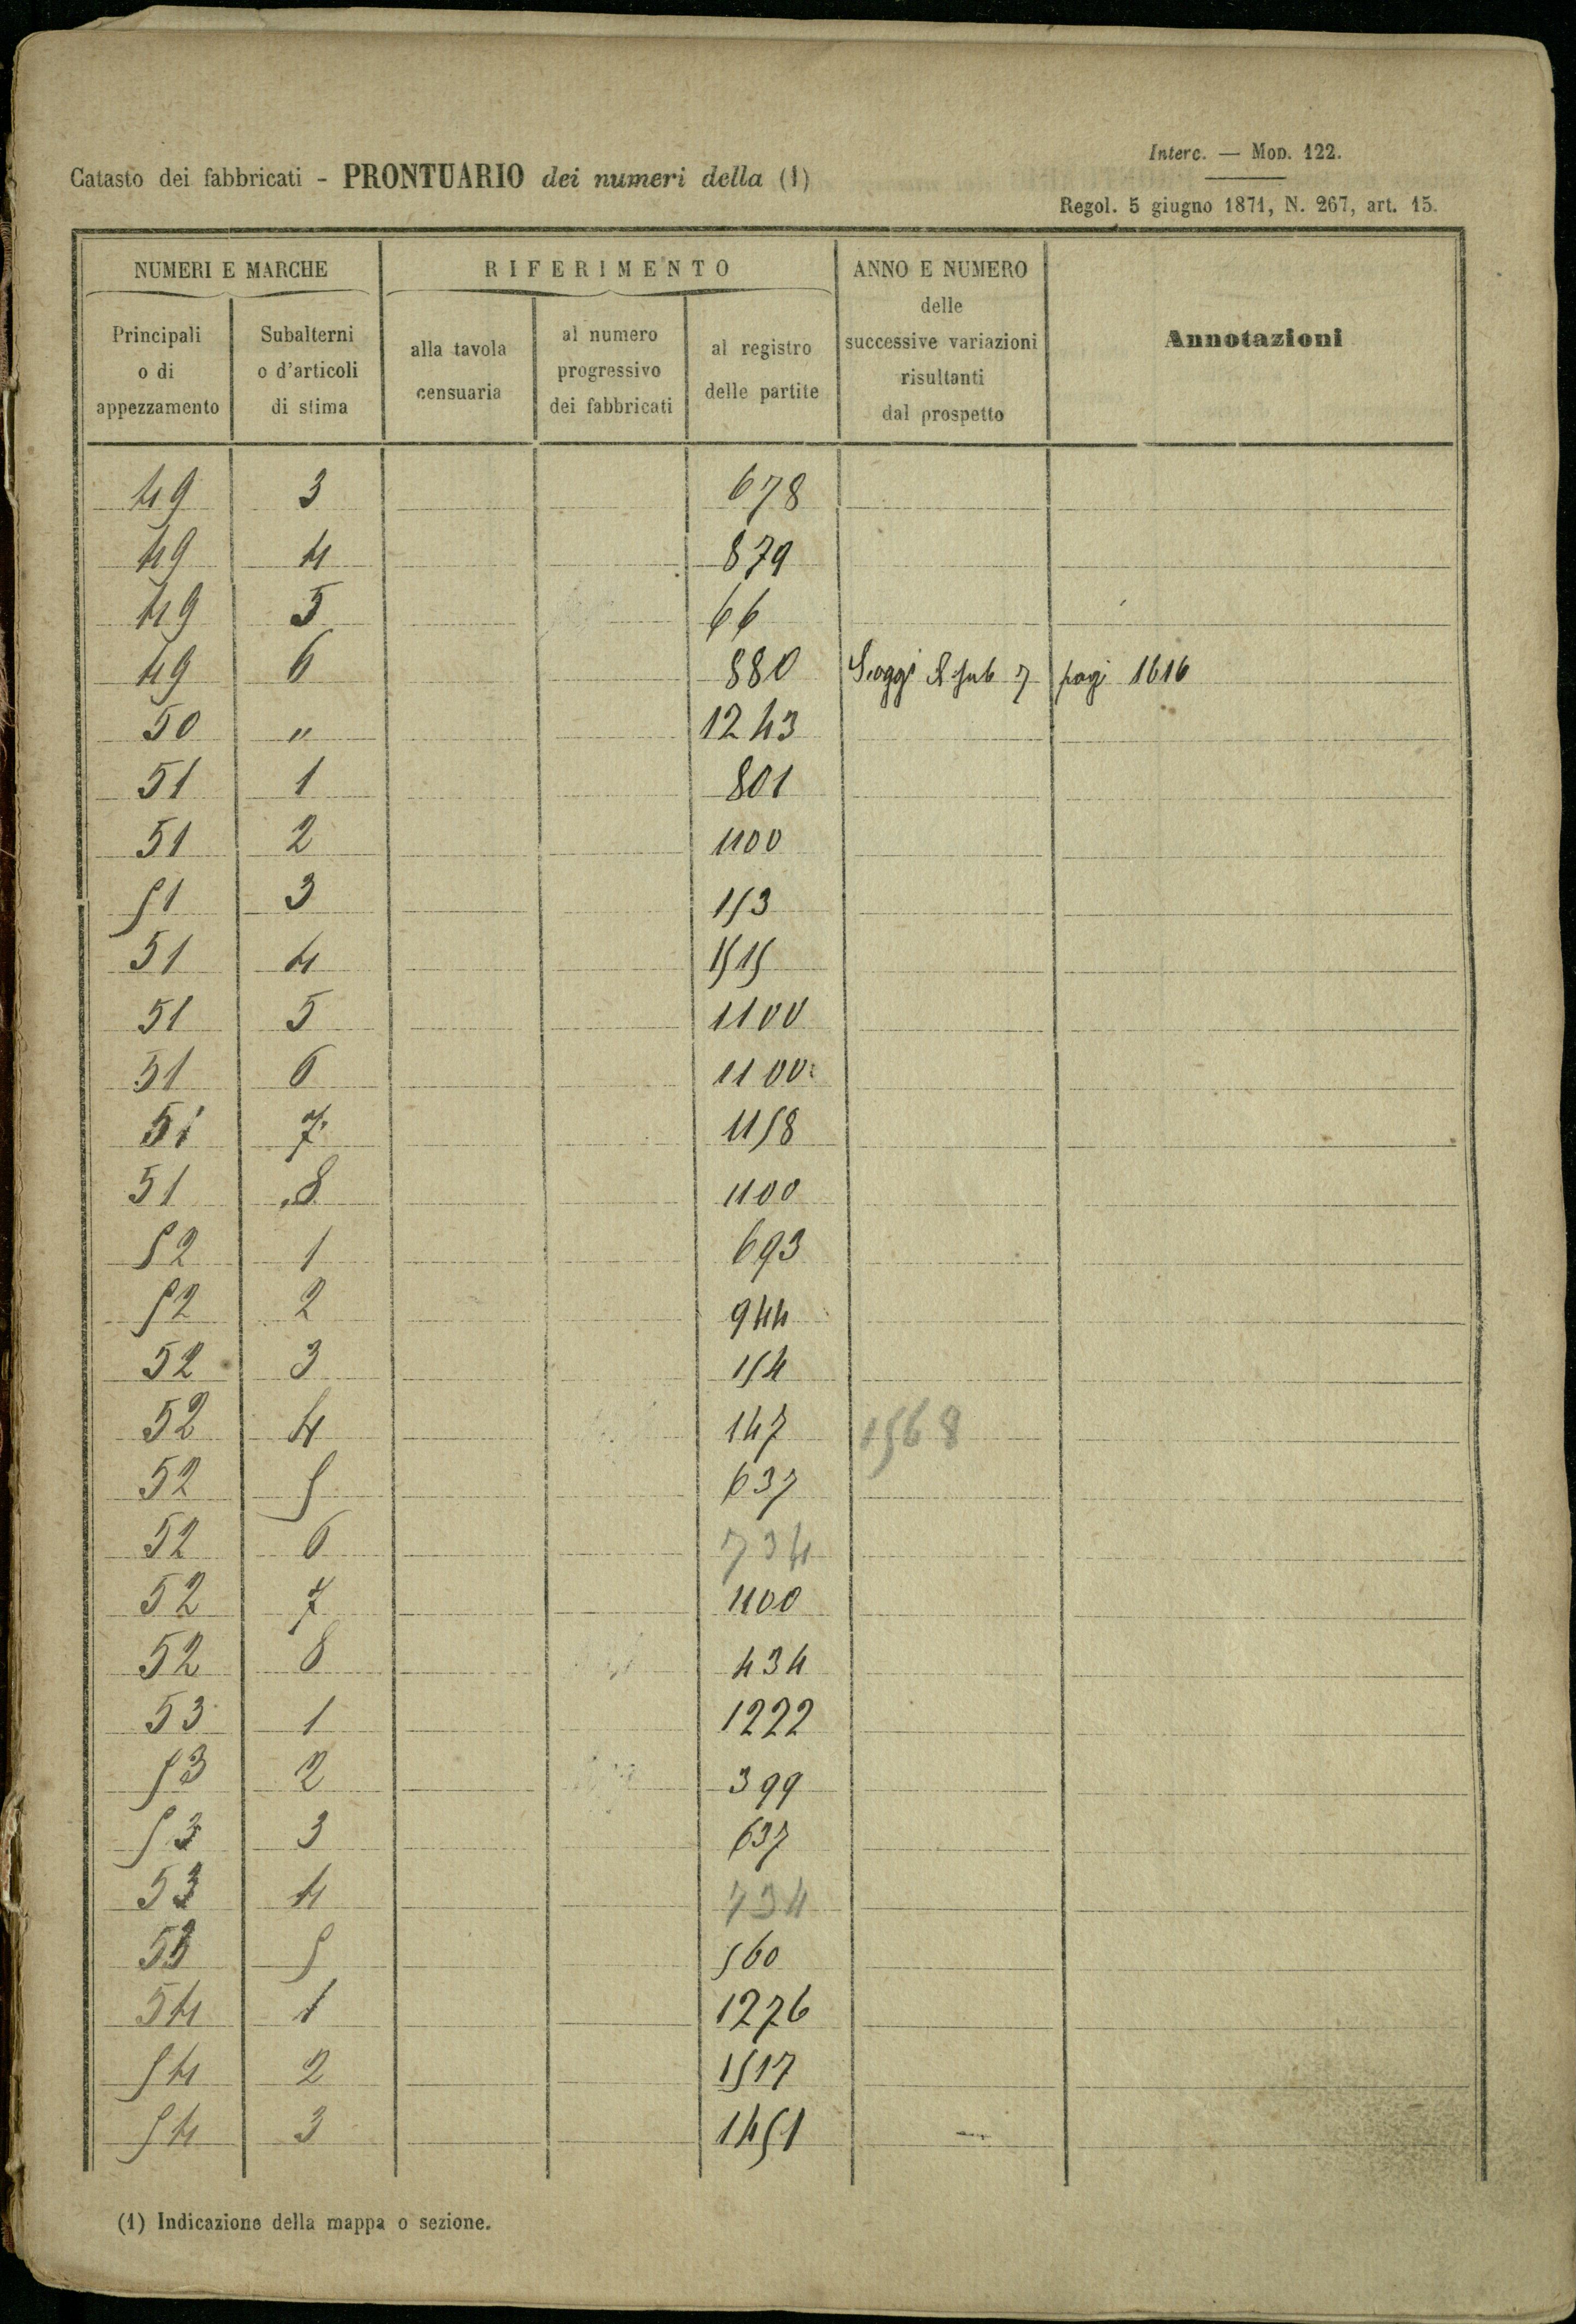 Interc. — Mod. 122.
Catasto dei fabbricati - PRONTUARIO dei numeri della (1)
Regol. 5 giugno 1871, N. 267, art. 15.
NUMERI E MARCHE RIFERIMENTO ANNO E NUMERO delle successive variazioni risultanti dal prospetto Annotazioni
Principali o di appezzamento Subalterni o d'articoli di stima alla tavola censuaria al numero progressivo dei fabbricati al registro delle partite
49 3 678
49 4 879
49 5 66
49 6 880 sub 7 pag 1616
50 " 1243
51 1 801
51 2 1100
51 3 153
51 4 1515
51 5 1100
51 6 1100
51 7 1158
51 8 1100
52 1 693
52 2 944
52 3 154
52 4 147 1568
52 5 637
52 6 734
52 7 1100
52 8 434
53 1 1222
53 2 399
53 3 637
53 4 734
53 5 560
54 1 1276
54 2 1517
54 3 1451
(1) Indicazione della mappa o sezione.